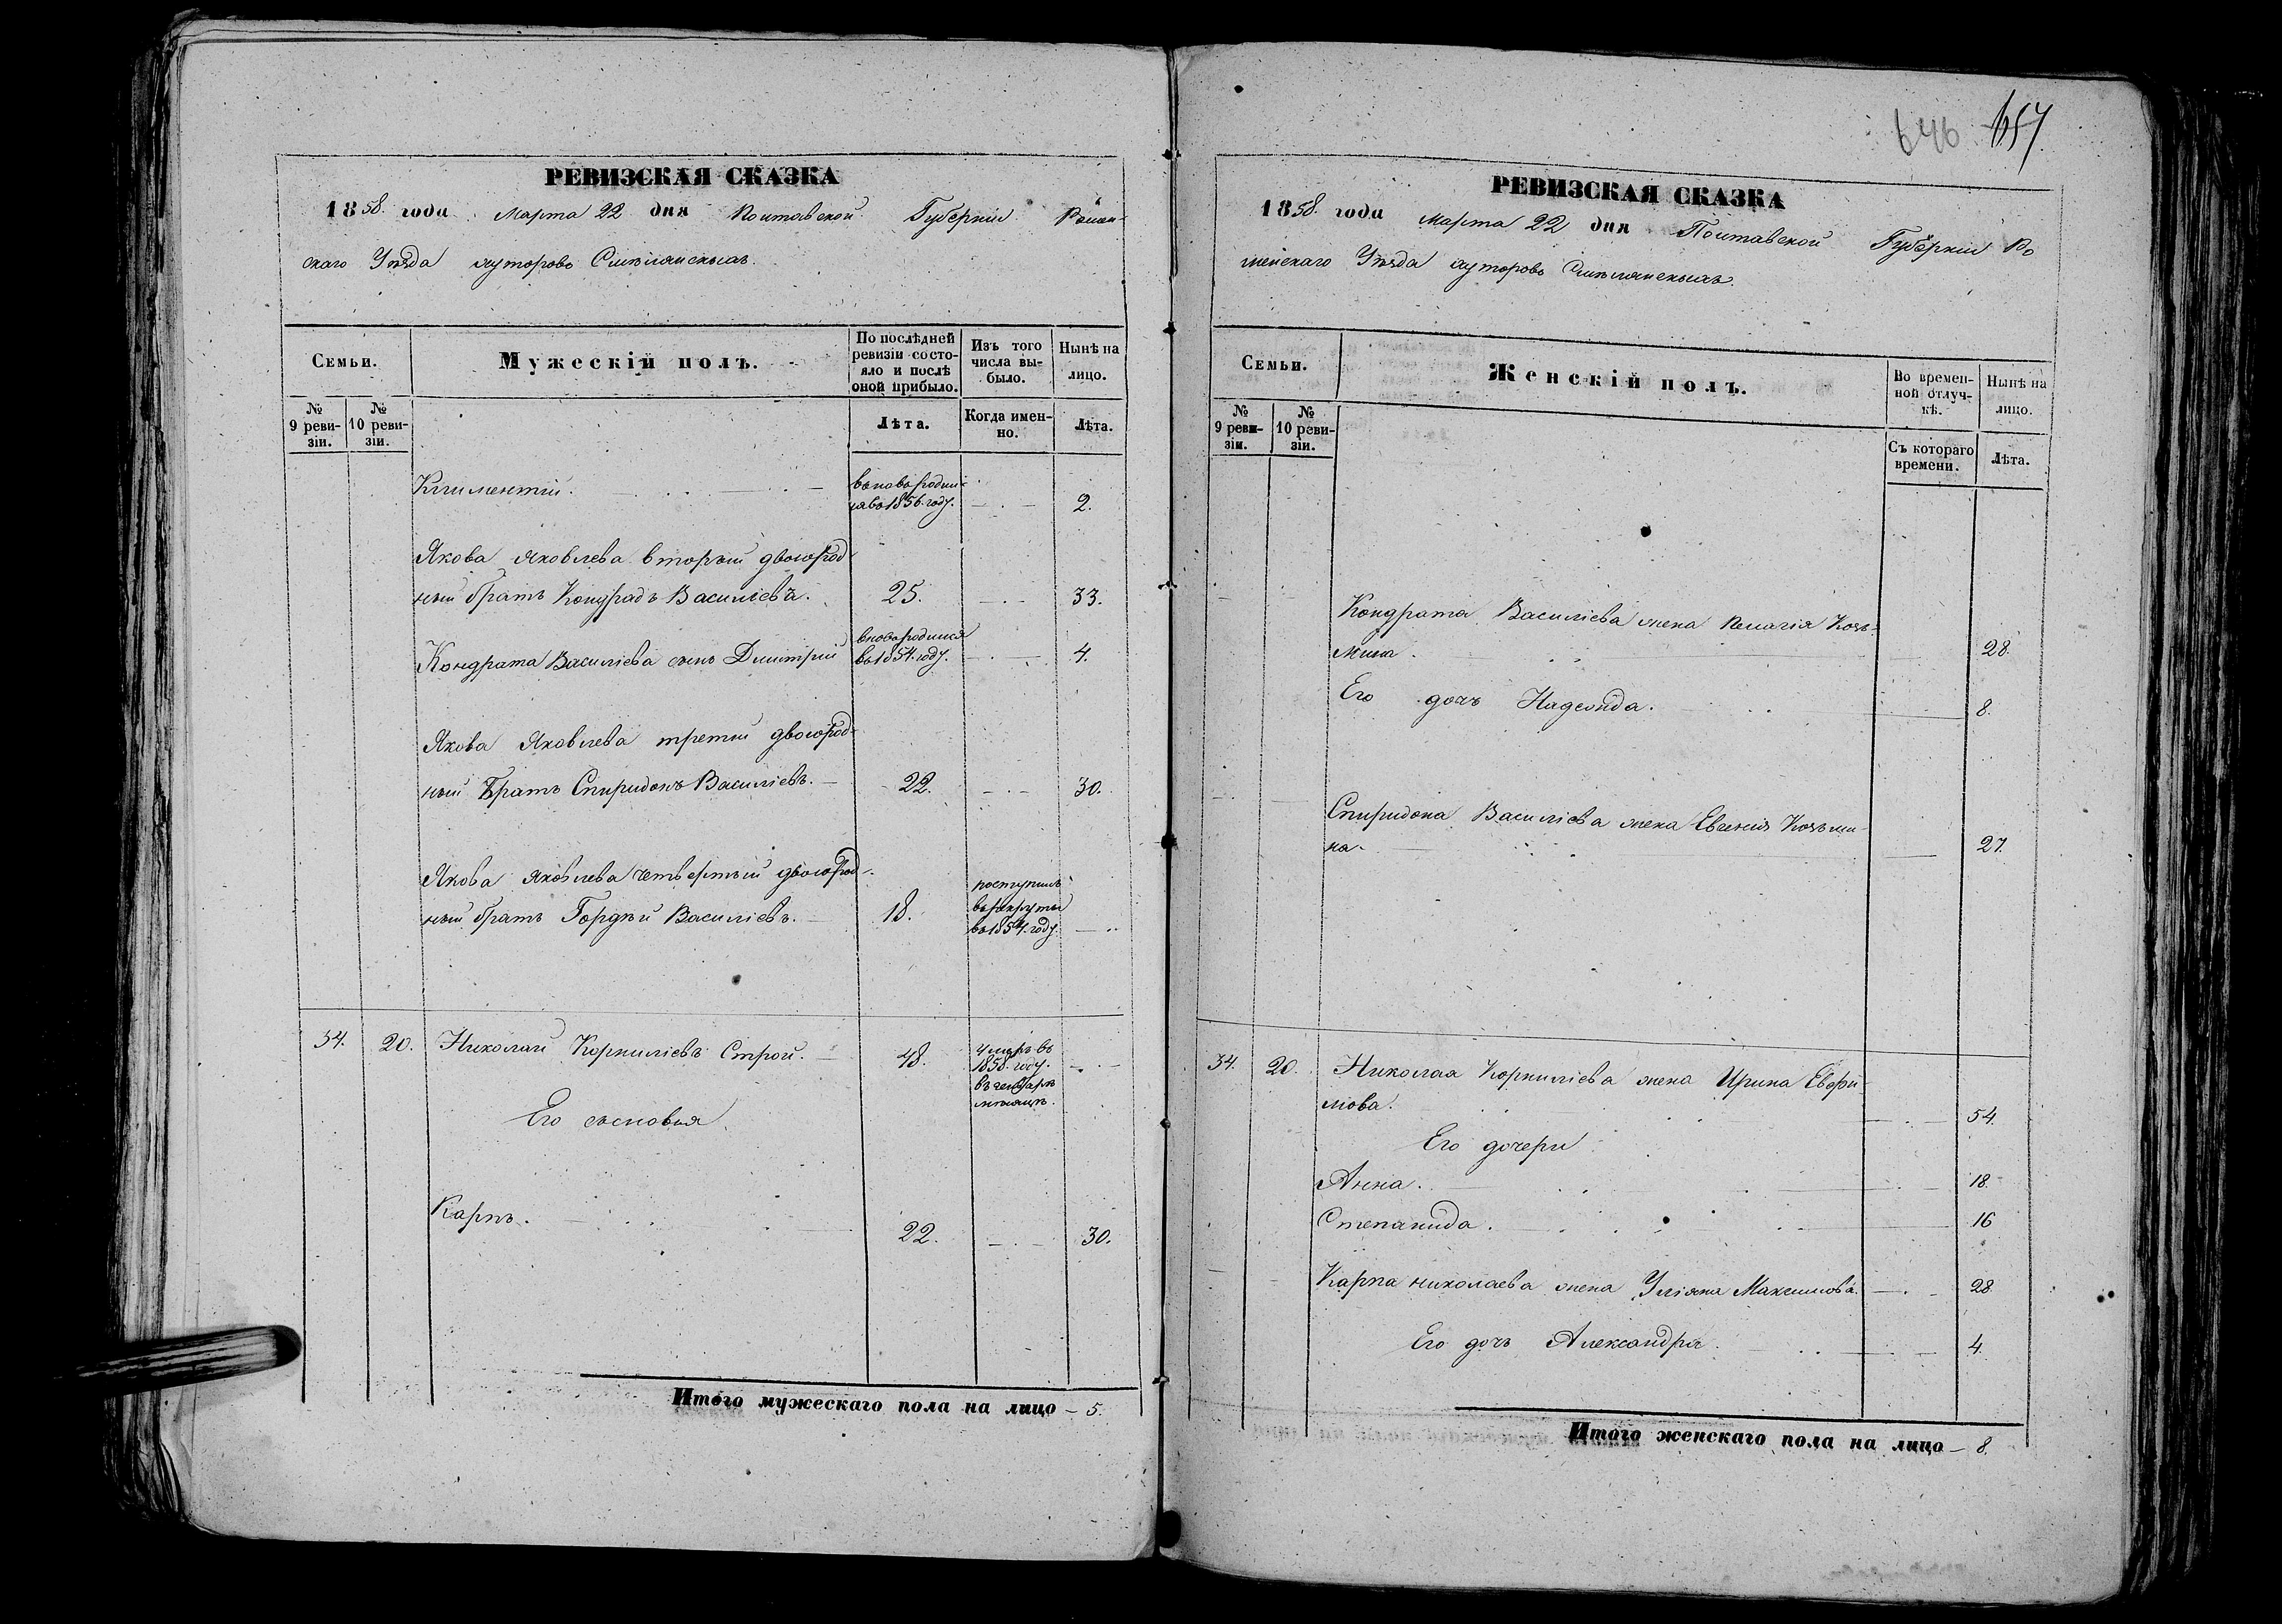 РЕВИЗСКАЯ СКАЗКА
1858. года Марта 22 дня Полтавской Губерніи Ромен-
скаго Уѣзда хуторовъ Смѣлянскихъ.
Семьи.
№ 9 ревизіи.
№ 10 ревизіи.
Мужескій полъ.
По послѣдней
ревизіи состо-
яло и послѣ
оной прибыло.
Лѣта.
Изъ того
числа вы-
было.
Когда имен-
но.
Нынѣ на
лицо.
Лѣта.
Климентій. вновь родил-
ся въ 1856. году. 2.
Якова Яковлева вторый двоюрод-
ный братъ Кондратъ Василіевъ. 25. 33.
Кондрата Василіева сынъ Дмитрій вновь родился
въ 1854. году. 4.
Якова Яковлева третій двоюрод-
ный братъ Спиридонъ Василіевъ. 22. 30.
Якова Яковлева четвертый двоюрод-
ный братъ Гордѣй Василіевъ. 18. поступилъ
въ рекруты
въ 1854. году.
34. 20. Николай Корниліевъ Строй. 48. умеръ въ
1858. году.
въ генварѣ
мѣсяцѣ.
Его сыновья
Карпъ. 22. 30.
Итого мужескаго пола на лицо – 5.
646 657
РЕВИЗСКАЯ СКАЗКА
1858. года Марта 22 дня Полтавской Губерніи Ро
менскаго Уѣзда хуторовъ Смѣлянскихъ.
Семьи.
№ 9 ревизіи.
№ 10 ревизіи.
Женскій полъ.
Во времен-
ной отлуч-
кѣ.
Съ котораго
времени.
Нынѣ на
лицо.
Лѣта.
Кондрата Василіева жена Пелагія Козь-
мина. 28.
Его дочь 8.
Спиридона Василіева жена Евгенія Козьми-
на. 27.
34. 20. Николая Корниліева жена Ирина Евфи-
мова. 54.
Его дочери
Анна. 18.
Степанида. 16
Карпа Николаева жена Уліяна Максимова. 28.
Его дочь Александра. 4.
Итого женскаго пола на лицо – 8.